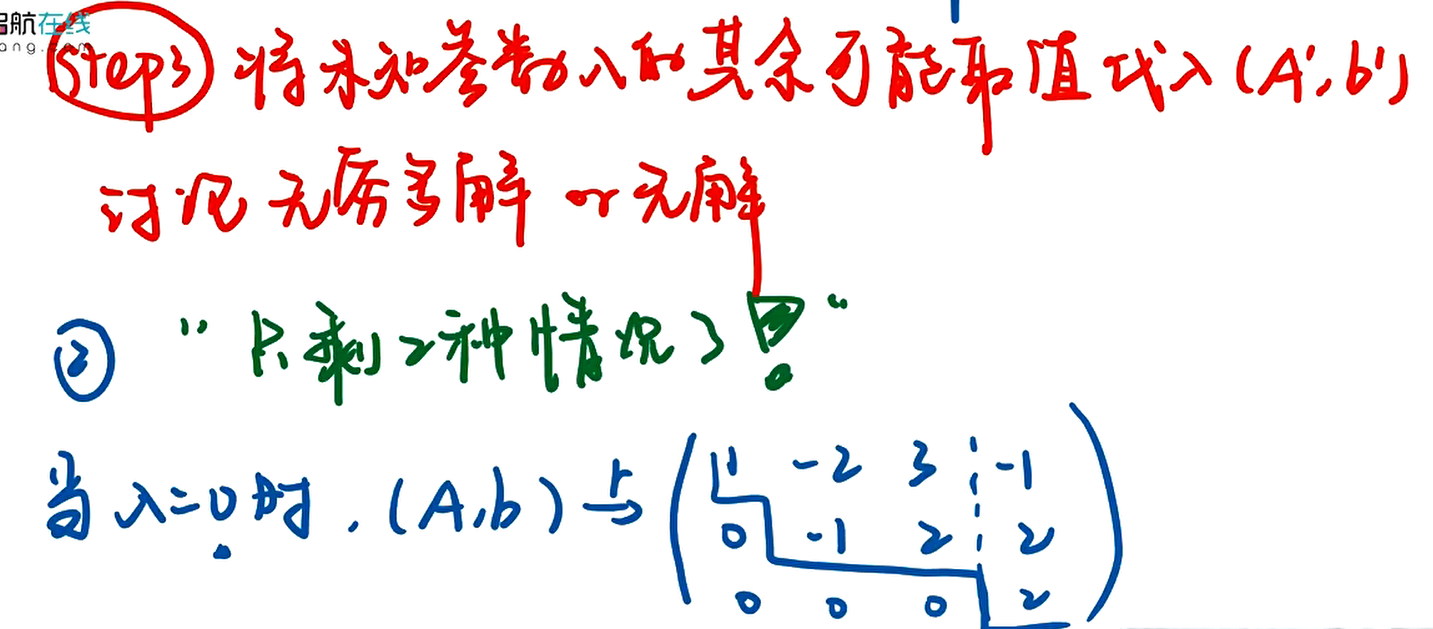 航在线
ang.com
Step3 将未知参数λ的其余可能取值代入(A',b')
讨论无穷多解 or 无解
② "只剩2种情况了!"
当λ=0时,(A,b) r→ ( 1 -2 3 ¦ -1
0 -1 2 ¦ 2
0 0 0 2 )